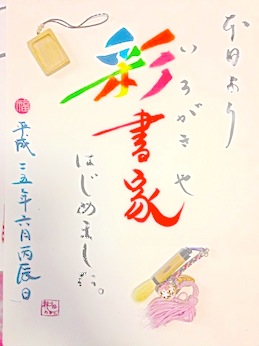 本日より
いろがきや
彩書家
はじめました。
平成二五年六月丙辰日